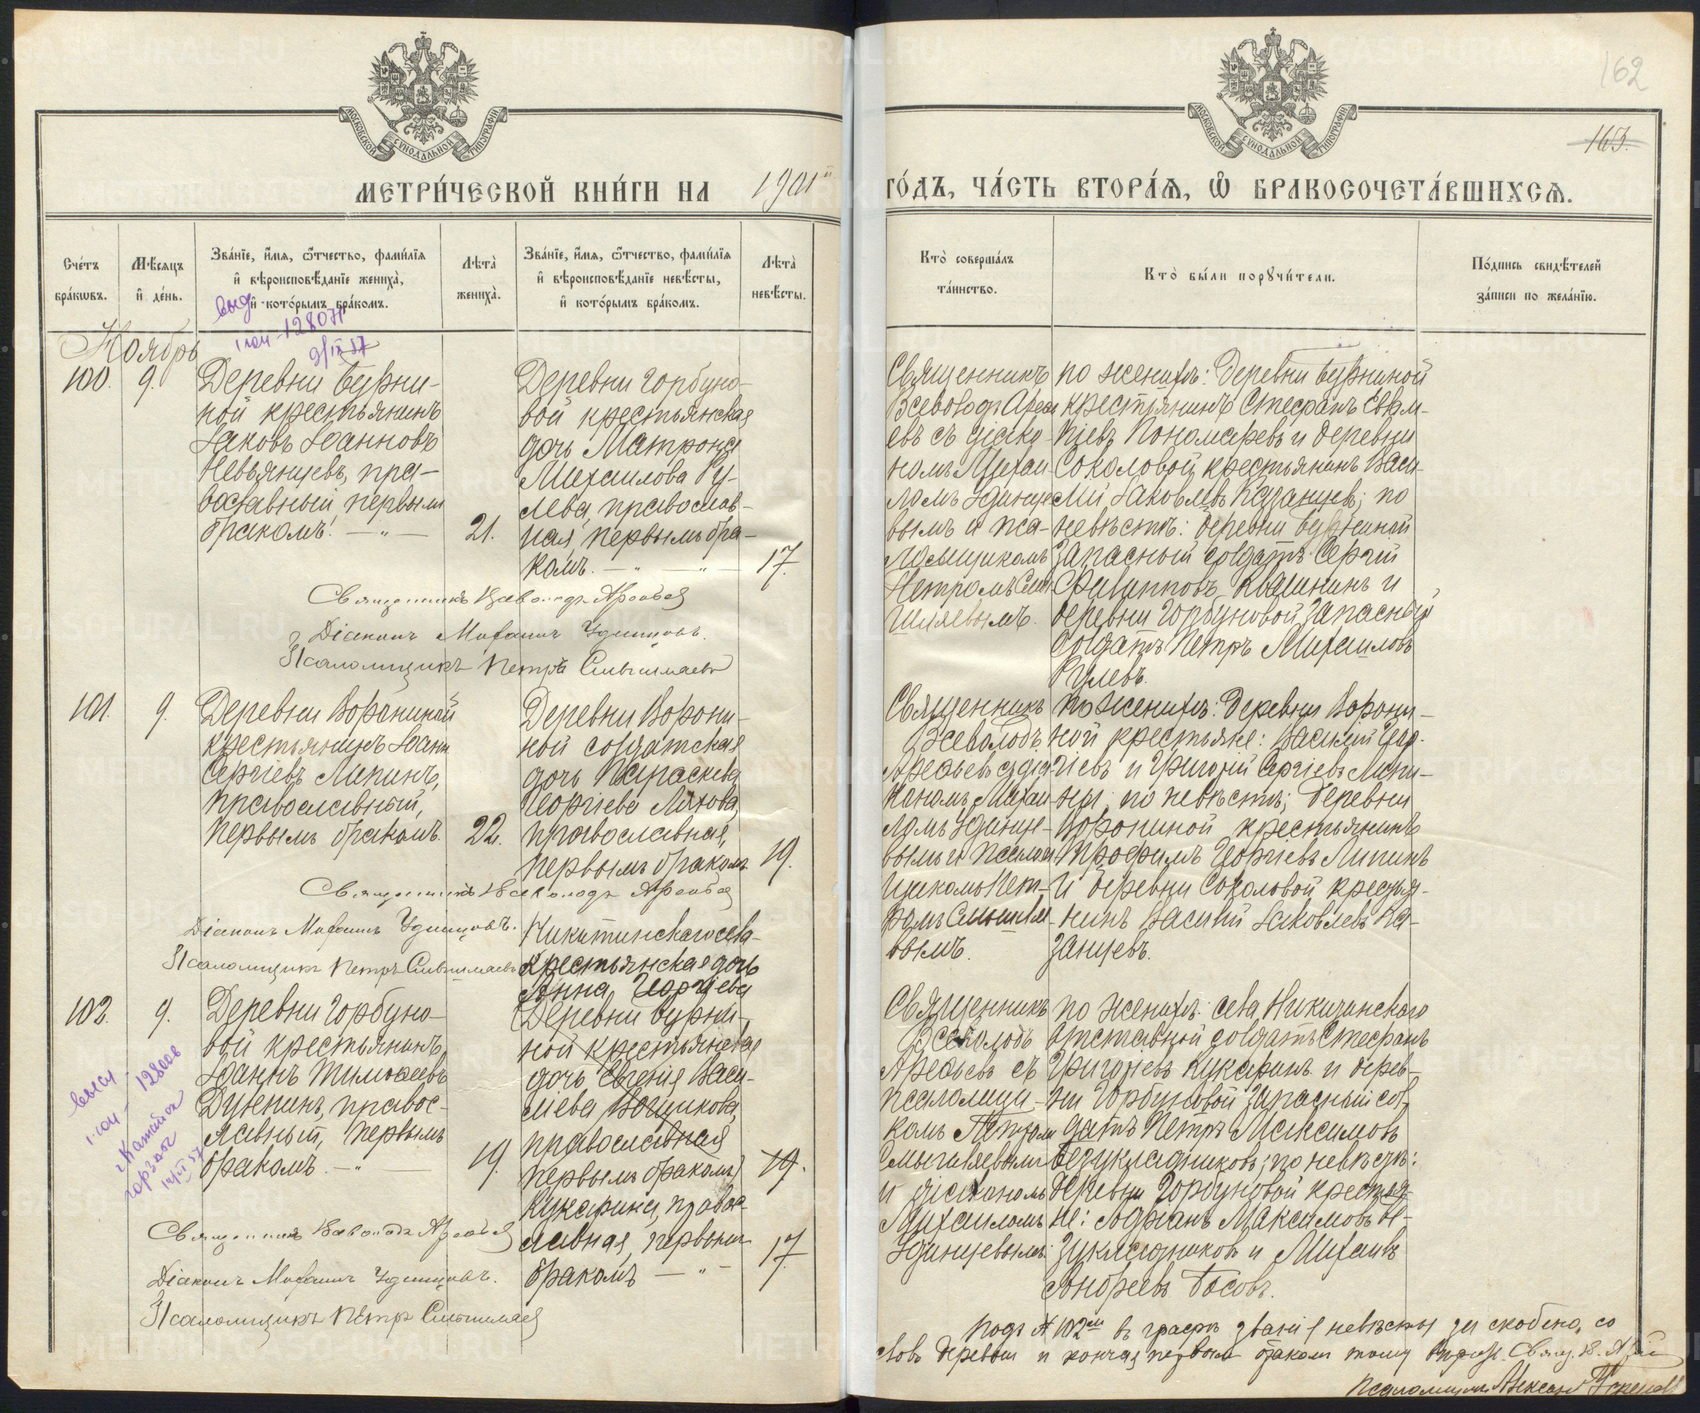 162
163.
МОСКОВСКОЙ СѴНОДАЛЬНОЙ ТИПОГРАФІИ
МОСКОВСКОЙ СѴНОДАЛЬНОЙ ТИПОГРАФІИ
МЕТРИ́ЧЕСКОЙ КНИ́ГИ НА 1901
ГО́ДЪ, ЧА́СТЬ ВТОРА́Ѧ, Ѽ БРАКОСОЧЕТА́ВШИХСѦ.
Сче́тъ бра́кѡвъ.
Мѣ́сѧцъ и҆ де́нь.
Зва́нїе, и҆́мѧ, ѻ҆́тчество, фами́лїѧ
и҆ вѣроисповѣ́данїе жениха̀,
и҆ кото́рымъ бра́комъ.
Лѣта̀ жениха̀.
Зва́нїе, и҆́мѧ, ѻ҆́тчество, фами́лїѧ
и҆ вѣроисповѣ́данїе невѣ́сты,
и҆ кото́рымъ бра́комъ.
Лѣта̀ невѣ́сты.
Кто̀ соверша́лъ
та́инство.
Кто̀ бы́ли порꙋчи́тели.
По́дпись свидѣ́телей
за́писи по жела́нїю.
Ноябрь
100. 9.
Деревни Бурни-
ной крестьянинъ
Іаковъ Іоанновъ
Невьянцевъ, пра-
вославный, первымъ
бракомъ. 21.
Деревни Горбуно-
вой крестьянская
дочь Матрона
Михаилова Ру-
лева, православ-
ная, первымъ бра-
комъ. 17.
Священникъ
Всеволодъ Арефь-
евъ съ діако-
номъ Михаи-
ломъ Удинце-
вымъ и пса-
ломщикомъ
Петромъ Смы-
шляевымъ.
по женихѣ: деревни Бурниной
крестьянинъ Стефанъ Евлам-
піевъ Пономаревъ и деревни
Соколовой крестьянинъ Васи-
лій Іаковлевъ Казанцевъ; по
невѣстѣ: деревни Бурниной
запасный солдатъ Сергій
Филипповъ и
деревни Горбуновой запасный
солдатъ Петръ Михаиловъ
Рулевъ.
Священникъ Всеволодъ Арефьев
Діаконъ Михаилъ Удинцовъ.
Псаломщикъ Петръ Смышляевъ
101. 9.
Деревни Ворониной
крестьянинъ Іоаннъ
Сергіевъ Липинъ,
православный,
первымъ бракомъ. 22.
Деревни Ворони-
ной солдатская
дочь Параскева
Георгіева Ляхова,
православная,
первымъ бракомъ 19.
Священникъ
Всеволодъ
Арефьевъ съ діа-
кономъ Михаи-
ломъ Удинце-
вымъ и псалом-
щикомъ Пет-
ромъ Смышляе-
вымъ.
по женихѣ: деревни Ворони-
ной крестьяне: Василій Геор-
гіевъ и Григорій Сергіевъ Липи-
ны; по невѣстѣ: деревни
Ворониной крестьянинъ
Трофимъ Георгіевъ Липинъ
и деревни Соколовой крестья-
нинъ Василій Іаковлевъ Ка-
занцевъ.
Священникъ Всеволодъ Арефьев
Діаконъ Михаилъ Удинцовъ.
Псаломщикъ Петръ Смышляевъ
102. 9.
Деревни Горбуно-
вой крестьянинъ
Іоаннъ Тимоѳеевъ
правос-
лавный, первымъ
бракомъ. 19.
Никитинскаго села
крестьянская дочь
Анна Георгіева
Деревни Бурни-
ной крестьянская
дочь Евгенія Васи-
ліева
православная
первымъ бракомъ 19.
Кукарина, правос-
лавная, первымъ
бракомъ 17.
Священникъ
Всеволодъ
Арефьевъ съ
псаломщи-
комъ Петромъ
Смышляевымъ
и діакономъ
Михаиломъ
Удинцевымъ.
по женихѣ: села Никитинскаго
отставной солдатъ Стефанъ
Григорьевъ Кукаринъ и дерев-
ни Горбуновой запасный сол-
датъ Петръ Максимовъ
Безукладниковъ; по невѣстѣ:
деревни Горбуновой крестья-
не: Адріанъ Максимовъ Бе-
зукладниковъ и Михаилъ
Андреевъ Босовъ.
Священникъ Всеволодъ Арефьев
Діаконъ Михаилъ Удинцовъ.
Псаломщикъ Петръ Смышляев
Подъ № 102мъ въ графѣ званія невѣсты зачскоблено, со
словъ деревни и кончая первымъ бракомъ тому Свящ. В. Ареф
Псаломщикъ